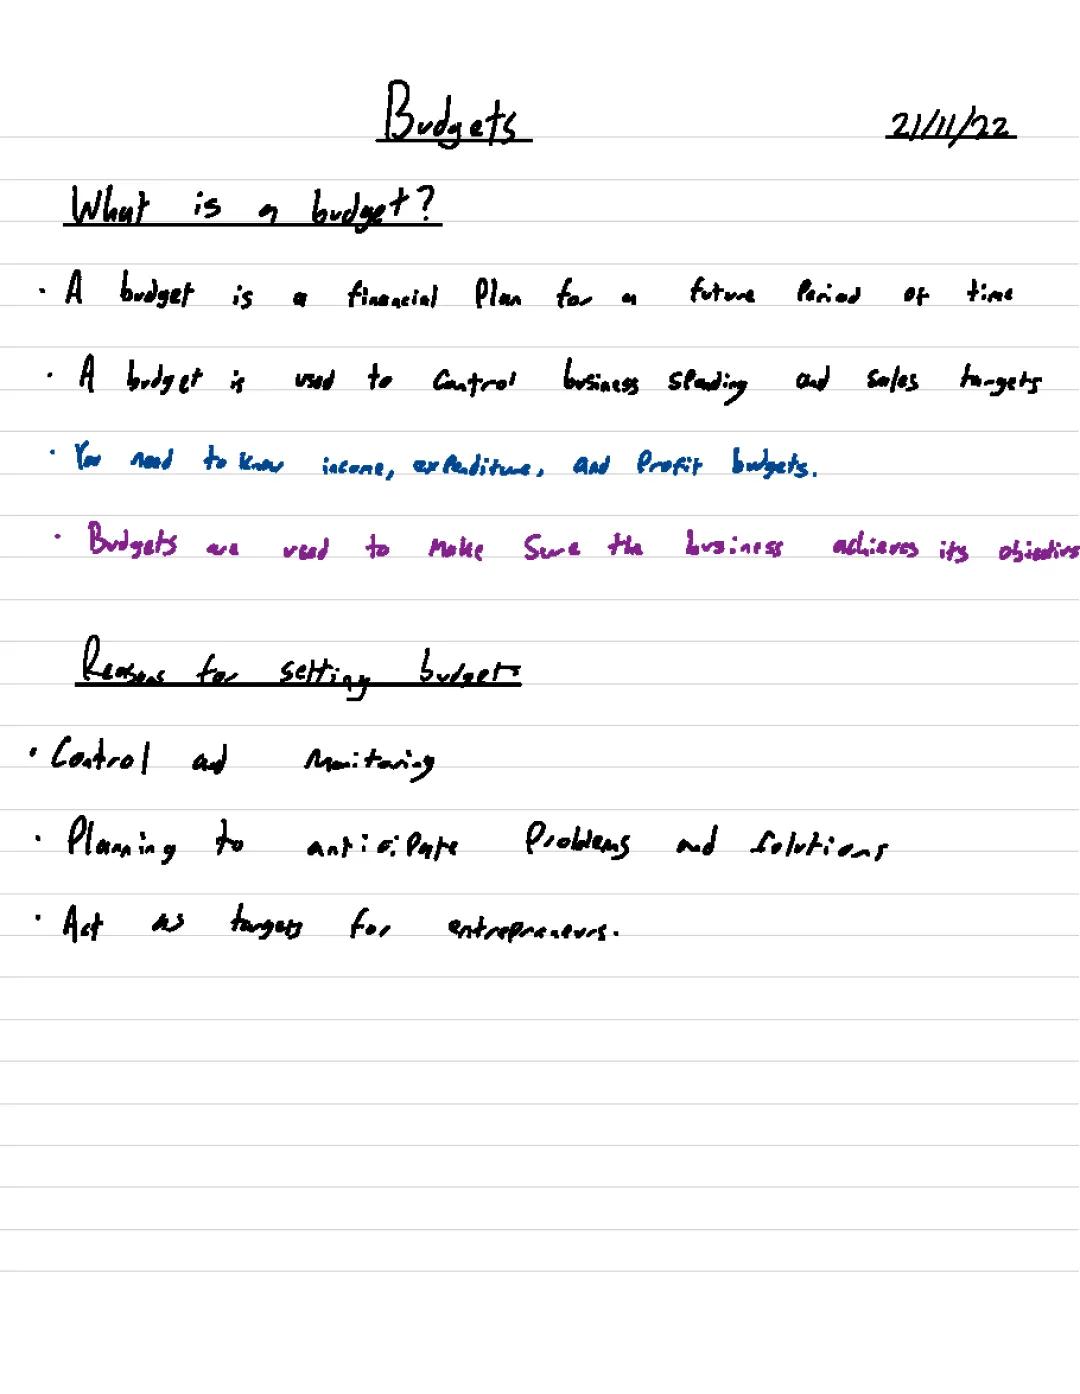 Budgets
21/11/22
What is a budget?
· A budget is a financial Plan for a future Period of time
· A budget is used to Control business spending and sales targets
· You need to know income, expenditure, and Profit budgets.
· Budgets are used to Make Sure the business achieves its objective
Reasons for setting budgets
· Control and Monitoring
· Planning to anticipate Problems and solutions
· Act as targets for entrepreneurs.